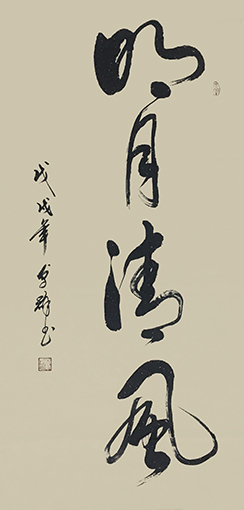 明月清風
戊戌年